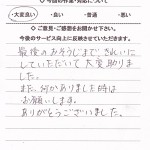 ・大変良い ・良い ・普通 ・悪い
◇ ご意見・ご感想をお聞かせ下さい。
今後のサービス向上に反映させていただきます。
最後のおそうじまできれいに
していただいて大変助かり
ました。
また、何かありました時は
お願いします。
ありがとうございました。